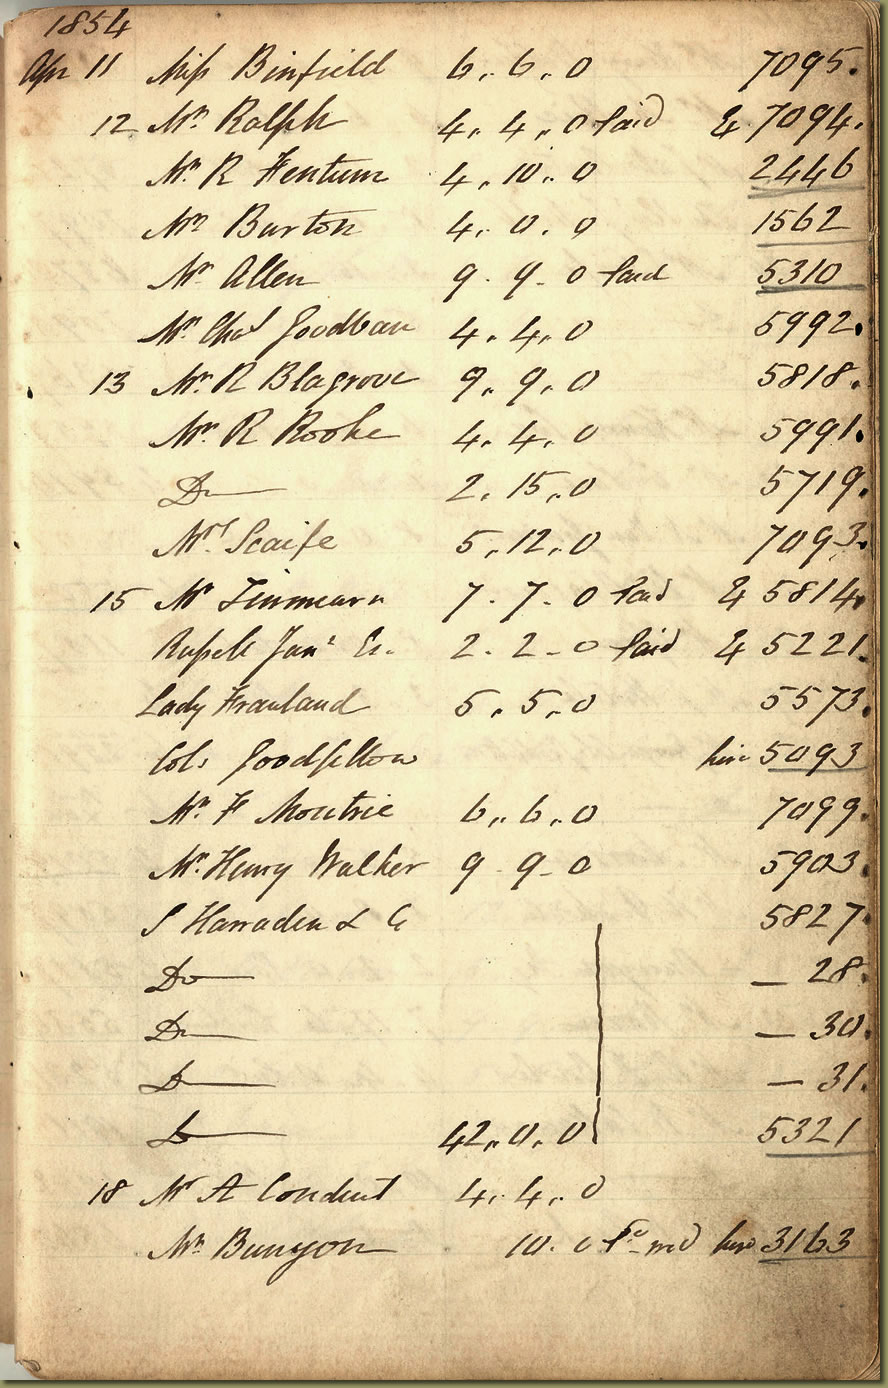 1854
Apr 11 Miss Binfield 6 ,, 6 ,, 0 7095.
12 Mr. Ralph 4 ,, 4 ,, 0 Paid & 7094.
Mr. R Fentum 4 ,, 10 ,, 0 2446
Mr. Burton 4 . 0 . 0 1562
Mr. Allen 9 . 9 - 0 Paid 5310
Mr. Chas Goodban 4 ,, 4 ,, 0 5992.
13 Mr. R Blagrove 9 ,, 9 ,, 0 5818.
Mr. R Rooke 4 ,, 4 ,, 0 5991.
Do 2 . 15 ,, 0 5719.
Mrs. Scaife 5 ,, 12 ,, 0 7093.
15 Mr 7 . 7 - 0 Paid & 5814.
Russell 2 . 2 - 0 Paid & 5221.
Lady 5 ,, 5 ,, 0 5573.
Col. Goodfellow hire 5093
Mr. F Moutrie 6 ,, 6 ,, 0 7099.
Mr. Henry Walker 9 . 9 - 0 5903.
S Harraden & Co 5827.
Do — 28.
Do — 30.
Do — 31.
Do 42 ,, 0 ,, 0 5321
18 Mr A Conduit 4 ,, 4 ,, 0
Mr. Bunyon 10 . 0 hire 3163